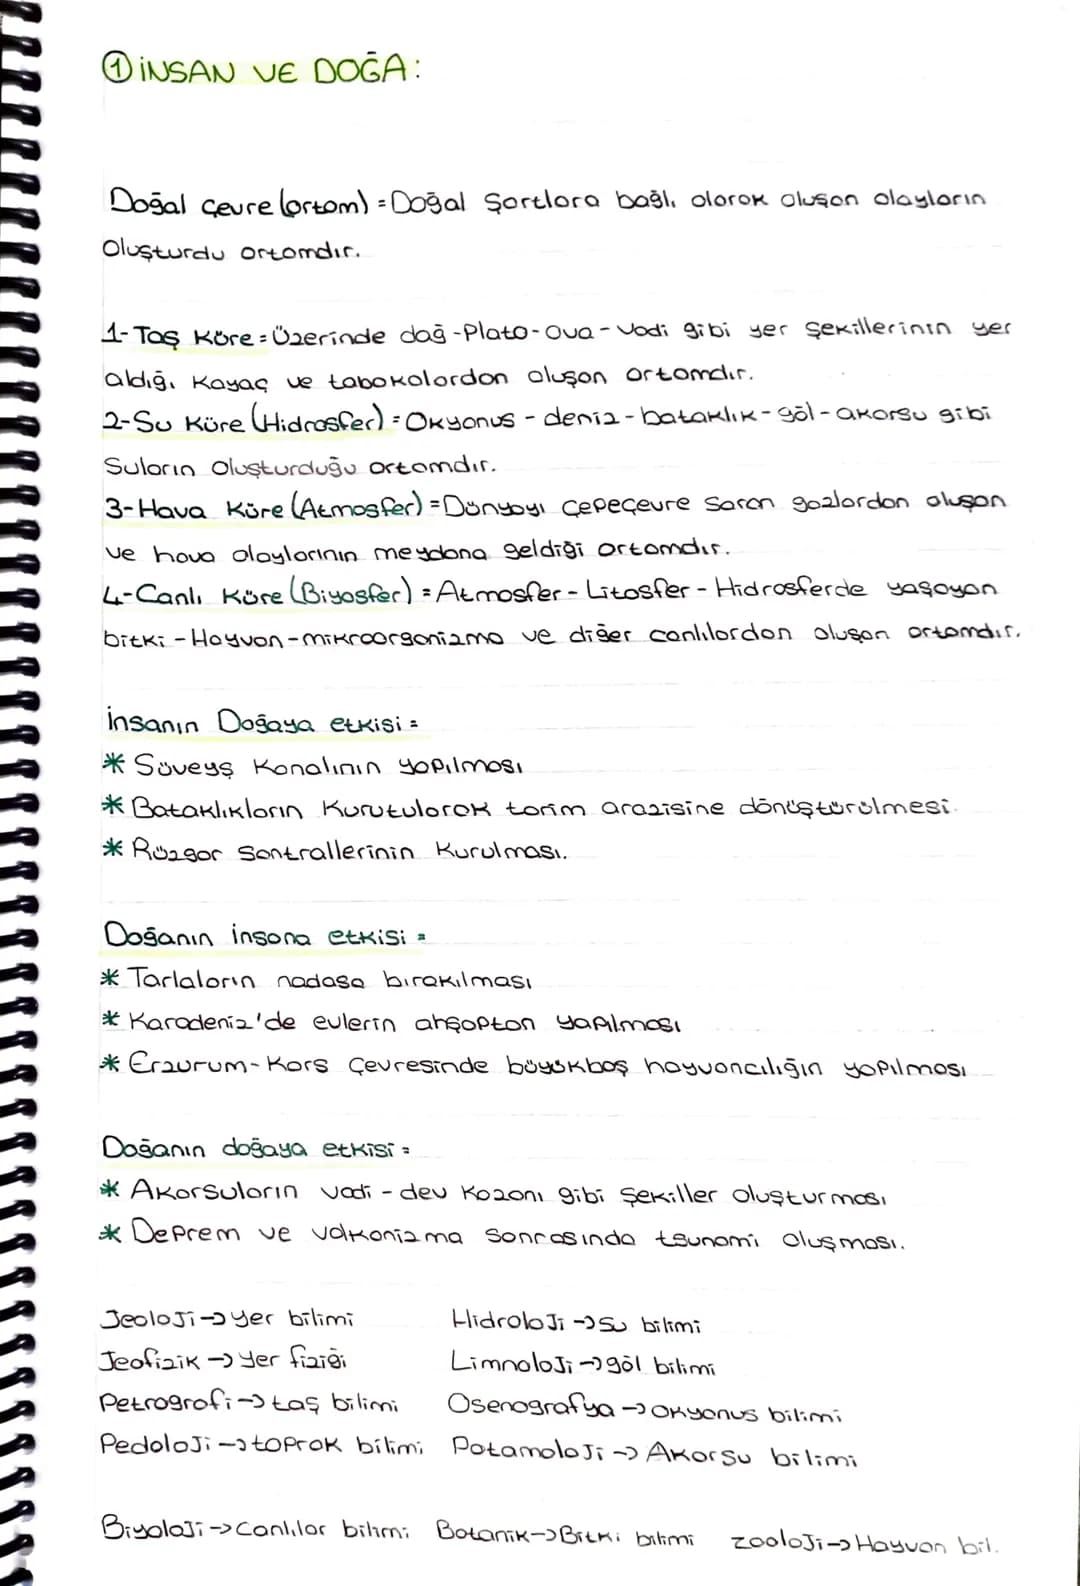 ① İNSAN VE DOĞA:
Doğal çevre (ortam) = Doğal Şartlara bağlı olarak oluşan olayların
Oluşturdu ortamdır.
1- Taş Küre = Üzerinde dağ - Plato - Ova - Vadi gibi yer Şekillerinin yer
aldığı Kayaç ve tabakalardan oluşan ortamdır.
2- Su Küre (Hidrosfer) = Okyanus - deniz - bataklık - göl - akarsu gibi
Suların Oluşturduğu ortamdır.
3- Hava Küre (Atmosfer) = Dünyayı Çepeçevre Saran gazlardan oluşan
ve hava olaylarının meydana geldiği ortamdır.
4- Canlı Küre (Biyosfer) = Atmosfer - Litosfer - Hidrosferde yaşayan
bitki - Hayvan - mikroorganizma ve diğer canlılardan oluşan ortamdır.
İnsanın Doğaya etkisi =
* Süveyş Kanalının yapılması
* Bataklıkların Kurutularak tarım arazisine dönüştürülmesi.
* Rüzgar Santrallerinin Kurulması.
Doğanın İnsana etkisi =
* Tarlaların nadasa bırakılması
* Karadeniz'de evlerin ahşaptan yapılması
* Erzurum - Kars Çevresinde büyükbaş hayvancılığın yapılması
Doğanın doğaya etkisi =
* Akarsuların vadi - dev Kazanı gibi Şekiller oluşturması
* Deprem ve volkanizma Sonrasında tsunami oluşması.
Jeoloji → yer bilimi Hidroloji → Su bilimi
Jeofizik → Yer fiziği Limnoloji → göl bilimi
Petrografi → taş bilimi Osenografya → Okyanus bilimi
Pedoloji → toprak bilimi Potamoloji → Akarsu bilimi
Biyoloji → Canlılar bilimi Botanik → Bitki bilimi Zooloji → Hayvan bil.